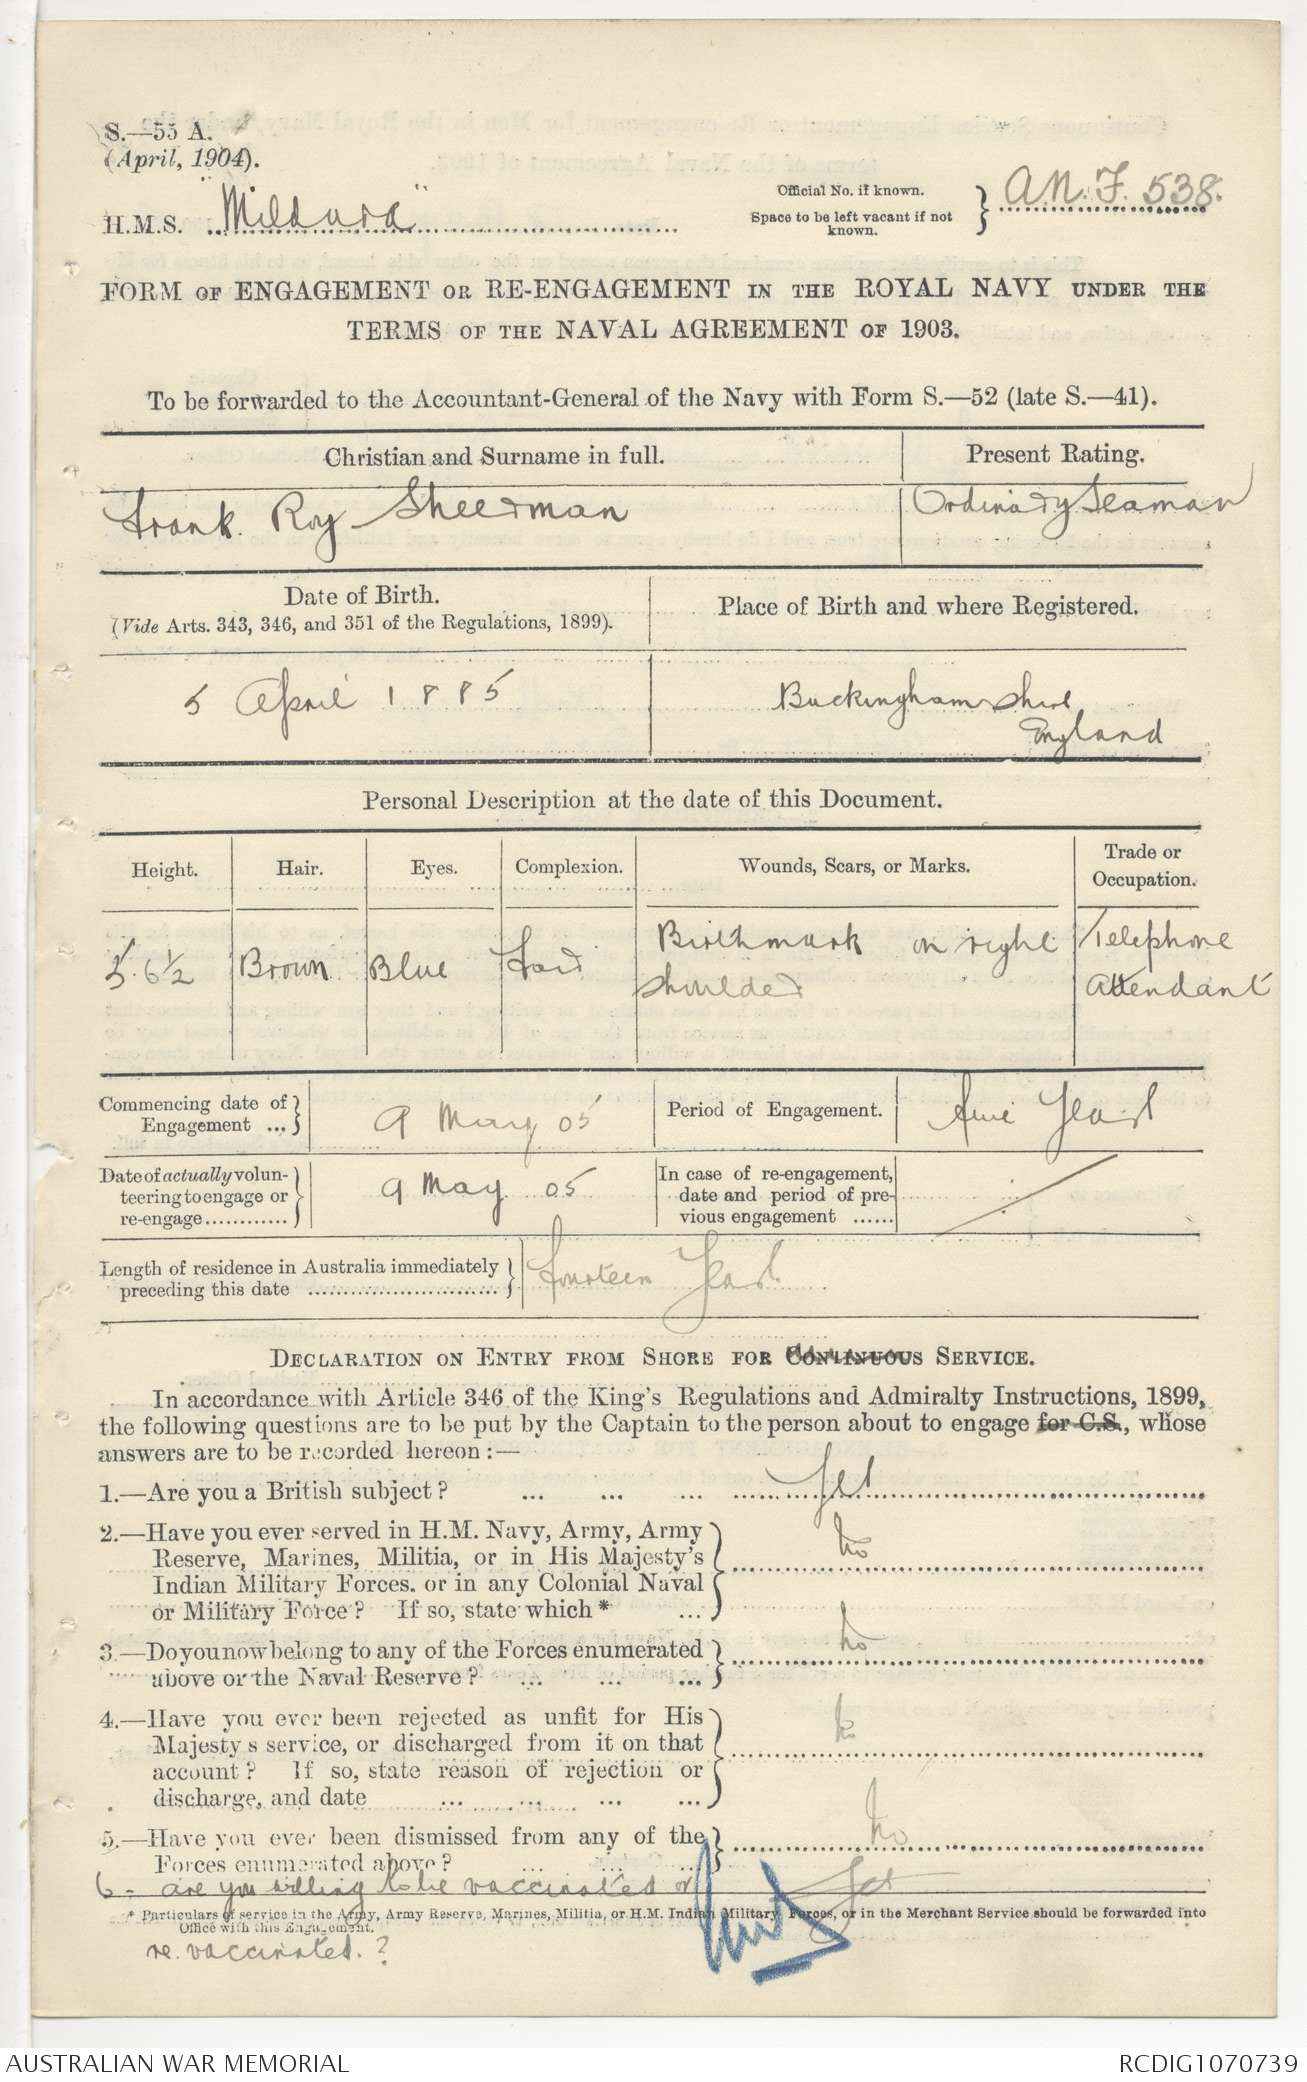 S.—55 A.
(April, 1904).
H.M.S. "Mildura"
Official No. if known.
Space to be left vacant if not
known.
A.N.F. 538.
FORM OF ENGAGEMENT OR RE-ENGAGEMENT IN THE ROYAL NAVY UNDER THE
TERMS OF THE NAVAL AGREEMENT OF 1903.
To be forwarded to the Accountant-General of the Navy with Form S.—52 (late S.—41).
Christian and Surname in full.
Present Rating.
Frank Roy Sheerman
Ordinary Seaman
Date of Birth.
(Vide Arts. 343, 346, and 351 of the Regulations, 1899).
Place of Birth and where Registered.
5 April 1885
Buckinghamshire
England
Personal Description at the date of this Document.
Height.
Hair.
Eyes.
Complexion.
Wounds, Scars, or Marks.
Trade or
Occupation.
5. 6½
Brown
Blue
Fair
Birthmark on right
shoulder
Telephone
Attendant
Commencing date of
Engagement ...
9 May 05
Period of Engagement.
Five Years
Date of actually volun-
teering to engage or
re-engage............
9 May 05
In case of re-engagement,
date and period of pre-
vious engagement ......
/
Length of residence in Australia immediately
preceding this date ...........................
Fourteen Years
DECLARATION ON ENTRY FROM SHORE FOR CONTINUOUS SERVICE.
In accordance with Article 346 of the King's Regulations and Admiralty Instructions, 1899,
the following questions are to be put by the Captain to the person about to engage for C.S., whose
answers are to be recorded hereon:—
1.—Are you a British subject? ... ... ... Yes
2.—Have you ever served in H.M. Navy, Army, Army
Reserve, Marines, Militia, or in His Majesty's
Indian Military Forces. or in any Colonial Naval
or Military Force? If so, state which* ...
No
3.—Do you now belong to any of the Forces enumerated
above or the Naval Reserve? ... ... ...
No
4.—Have you ever been rejected as unfit for His
Majesty s service, or discharged from it on that
account? If so, state reason of rejection or
discharge, and date ... ... ... ...
No
5.—Have you ever been dismissed from any of the
Forces enumerated above? ... ... ...
No
6- Are you willing to be vaccinated or
Yes
* Particulars of service in the Army, Army Reserve, Marines, Militia, or H.M. Indian Military Forces, or in the Merchant Service should be forwarded into
Office with this Engagement.
re. vaccinated.?
AUSTRALIAN WAR MEMORIAL
RCDIG1070739